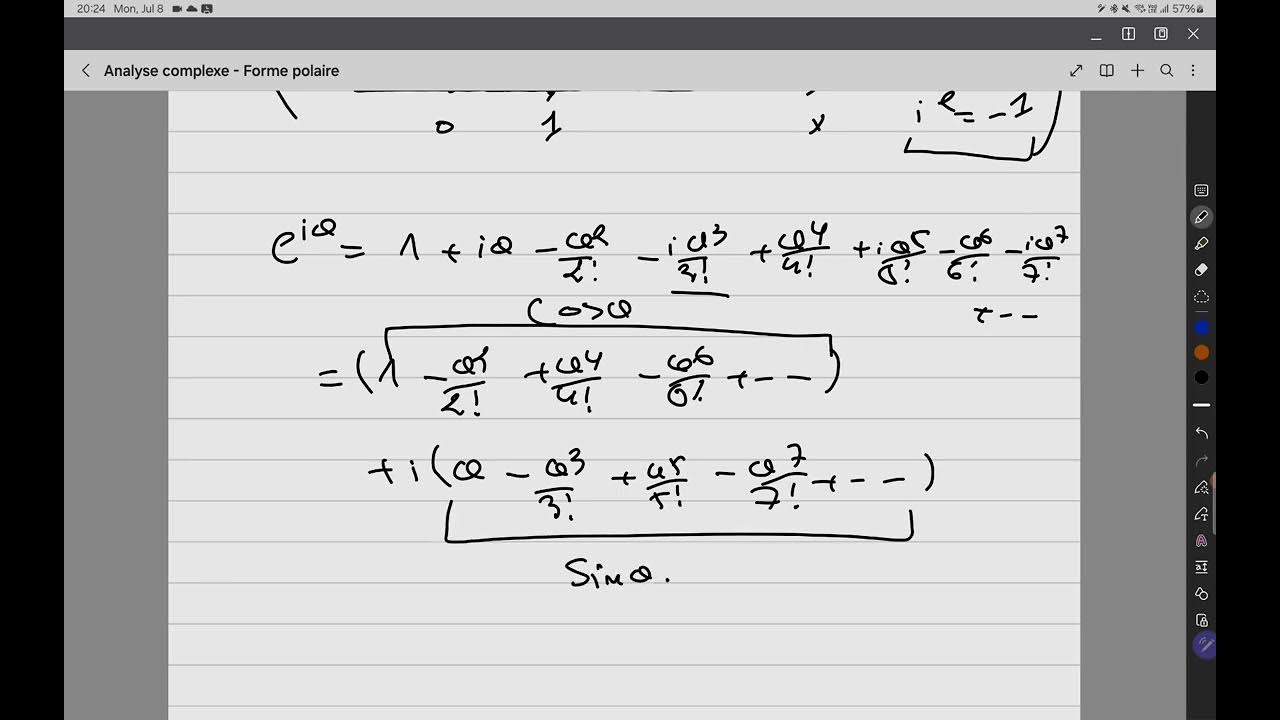 20:24 Mon, Jul 8 57%
Analyse complexe - Forme polaire
0 1 x i² = -1
e^{iθ} = 1 + iθ - θ²/2! - iθ³/3! + θ⁴/4! + iθ⁵/5! - θ⁶/6! - iθ⁷/7!
+ --
Cosθ
= (1 - θ²/2! + θ⁴/4! - θ⁶/6! + -- )
+ i(θ - θ³/3! + θ⁵/5! - θ⁷/7! + -- )
Sinθ.